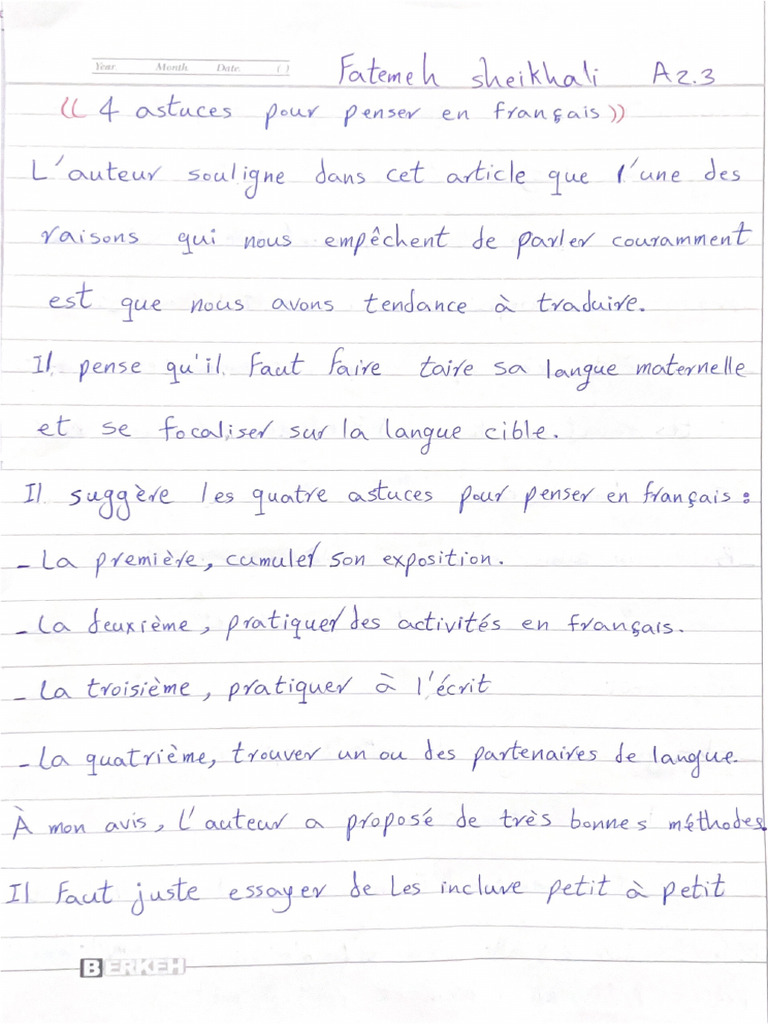 Year. Month. Date. ( )
Fatemeh sheikhali A2.3
(( 4 astuces pour penser en français ))
L'auteur souligne dans cet article que l'une des
raisons qui nous empêchent de parler couramment
est que nous avons tendance à traduire.
Il pense qu'il faut faire taire sa langue maternelle
et se focaliser sur la langue cible.
Il suggère les quatre astuces pour penser en français :
- La première, cumuler son exposition.
- La deuxième, pratiquer des activités en français.
- La troisième, pratiquer à l'écrit
- La quatrième, trouver un ou des partenaires de langue.
À mon avis, l'auteur a proposé de très bonnes méthodes
Il faut juste essayer de les inclure petit à petit
BERKEH